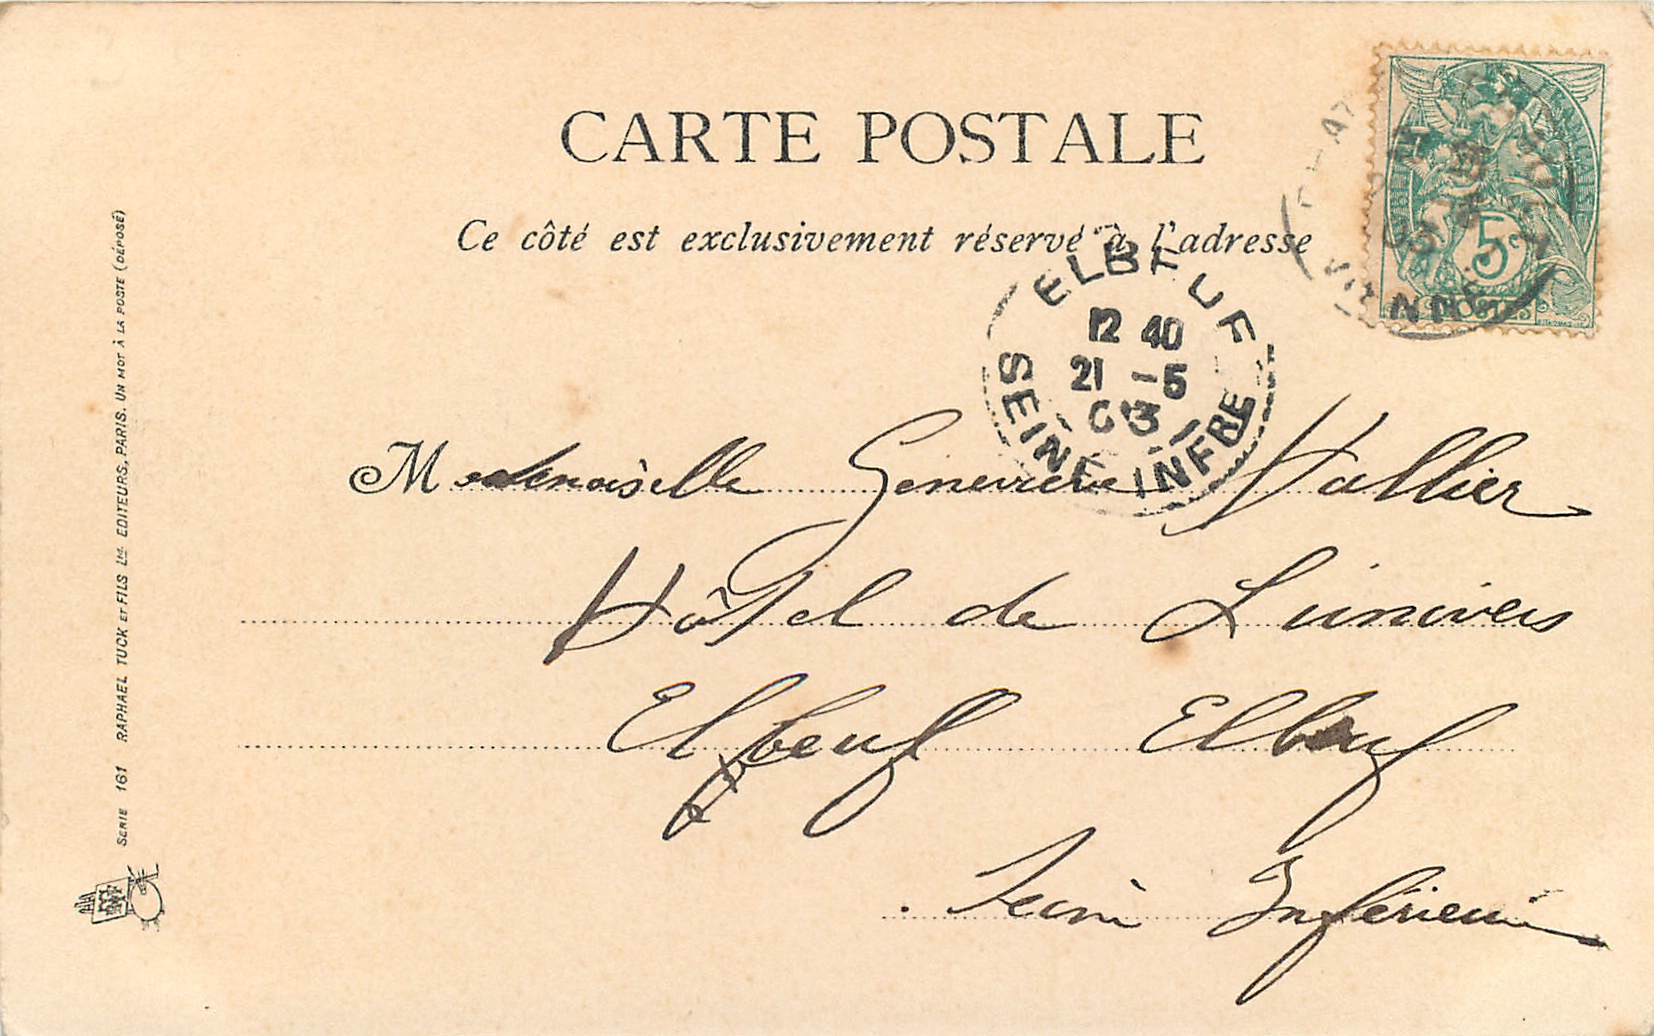 CARTE POSTALE
Ce côté est exclusivement réservé à l'adresse
5c
POSTES
VIENNE
ELBEUF
12 40
21 -5
03
SEINE INFRE
Mademoiselle Geneviève Vallier
Hôtel de L'univers
Elbeuf Elbeuf
Seine Inférieure
SERIE 161 RAPHAEL TUCK ET FILS Ltd. EDITEURS, PARIS. UN MOT À LA POSTE (DÉPOSÉ)